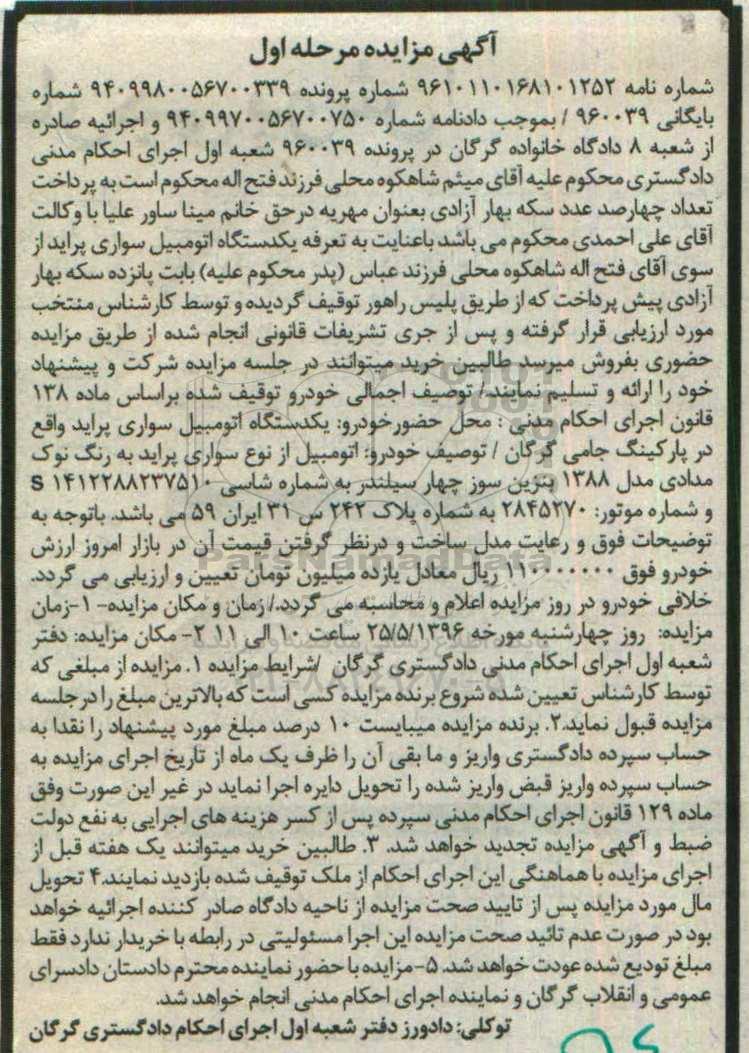 آگهی مزایده مرحله اول
شماره نامه ۹۶۱۰۱۱۰۱۶۸۱۰۱۲۵۲ شماره پرونده ۹۴۰۹۹۸۰۰۵۶۷۰۰۳۳۹ شماره
بایگانی ۹۶۰۰۳۹ / بموجب دادنامه شماره ۹۴۰۹۹۷۰۰۵۶۷۰۰۷۵۰ و اجرائیه صادره
از شعبه ۸ دادگاه خانواده گرگان در پرونده ۹۶۰۰۳۹ شعبه اول اجرای احکام مدنی
دادگستری محکوم علیه آقای میثم شاهکوه محلی فرزند فتح اله محکوم است به پرداخت
تعداد چهارصد عدد سکه بهار آزادی بعنوان مهریه درحق خانم مینا ساور علیا با وکالت
آقای علی احمدی محکوم می باشد باعنایت به تعرفه یکدستگاه اتومبیل سواری پراید از
سوی آقای فتح اله شاهکوه محلی فرزند عباس (پدر محکوم علیه) بابت پانزده سکه بهار
آزادی پیش پرداخت که از طریق پلیس راهور توقیف گردیده و توسط کارشناس منتخب
مورد ارزیابی قرار گرفته و پس از جری تشریفات قانونی انجام شده از طریق مزایده
حضوری بفروش میرسد طالبین خرید میتوانند در جلسه مزایده شرکت و پیشنهاد
خود را ارائه و تسلیم نمایند./ توصیف اجمالی خودرو توقیف شده براساس ماده ۱۳۸
قانون اجرای احکام مدنی : محل حضورخودرو: یکدستگاه اتومبیل سواری پراید واقع
در پارکینگ جامی گرگان / توصیف خودرو: اتومبیل از نوع سواری پراید به رنگ نوک
مدادی مدل ۱۳۸۸ بنزین سوز چهار سیلندر به شماره شاسی S ۱۴۱۲۲۸۸۲۳۷۵۱۰
و شماره موتور: ۲۸۴۵۲۷۰ به شماره پلاک ۲۴۲ س ۳۱ ایران ۵۹ می باشد. باتوجه به
توضیحات فوق و رعایت مدل ساخت و درنظر گرفتن قیمت آن در بازار امروز ارزش
خودرو فوق ۱۱۰۰۰۰۰۰۰ ریال معادل یازده میلیون تومان تعیین و ارزیابی می گردد.
خلافی خودرو در روز مزایده اعلام و محاسبه می گردد./ زمان و مکان مزایده- ۱-زمان
مزایده: روز چهارشنبه مورخه ۲۵/۵/۱۳۹۶ ساعت ۱۰ الی ۱۱ ۲- مکان مزایده: دفتر
شعبه اول اجرای احکام مدنی دادگستری گرگان /شرایط مزایده ۱. مزایده از مبلغی که
توسط کارشناس تعیین شده شروع برنده مزایده کسی است که بالاترین مبلغ را درجلسه
مزایده قبول نماید.۲. برنده مزایده میبایست ۱۰ درصد مبلغ مورد پیشنهاد را نقدا به
حساب سپرده دادگستری واریز و ما بقی آن را ظرف یک ماه از تاریخ اجرای مزایده به
حساب سپرده واریز قبض واریز شده را تحویل دایره اجرا نماید در غیر این صورت وفق
ماده ۱۲۹ قانون اجرای احکام مدنی سپرده پس از کسر هزینه های اجرایی به نفع دولت
ضبط و آگهی مزایده تجدید خواهد شد. ۳. طالبین خرید میتوانند یک هفته قبل از
اجرای مزایده با هماهنگی این اجرای احکام از ملک توقیف شده بازدید نمایند.۴ تحویل
مال مورد مزایده پس از تایید صحت مزایده از ناحیه دادگاه صادر کننده اجرائیه خواهد
بود در صورت عدم تائید صحت مزایده این اجرا مسئولیتی در رابطه با خریدار ندارد فقط
مبلغ تودیع شده عودت خواهد شد. ۵-مزایده با حضور نماینده محترم دادستان دادسرای
عمومی و انقلاب گرگان و نماینده اجرای احکام مدنی انجام خواهد شد.
توکلی: دادورز دفتر شعبه اول اجرای احکام دادگستری گرگان
ParsNamadData